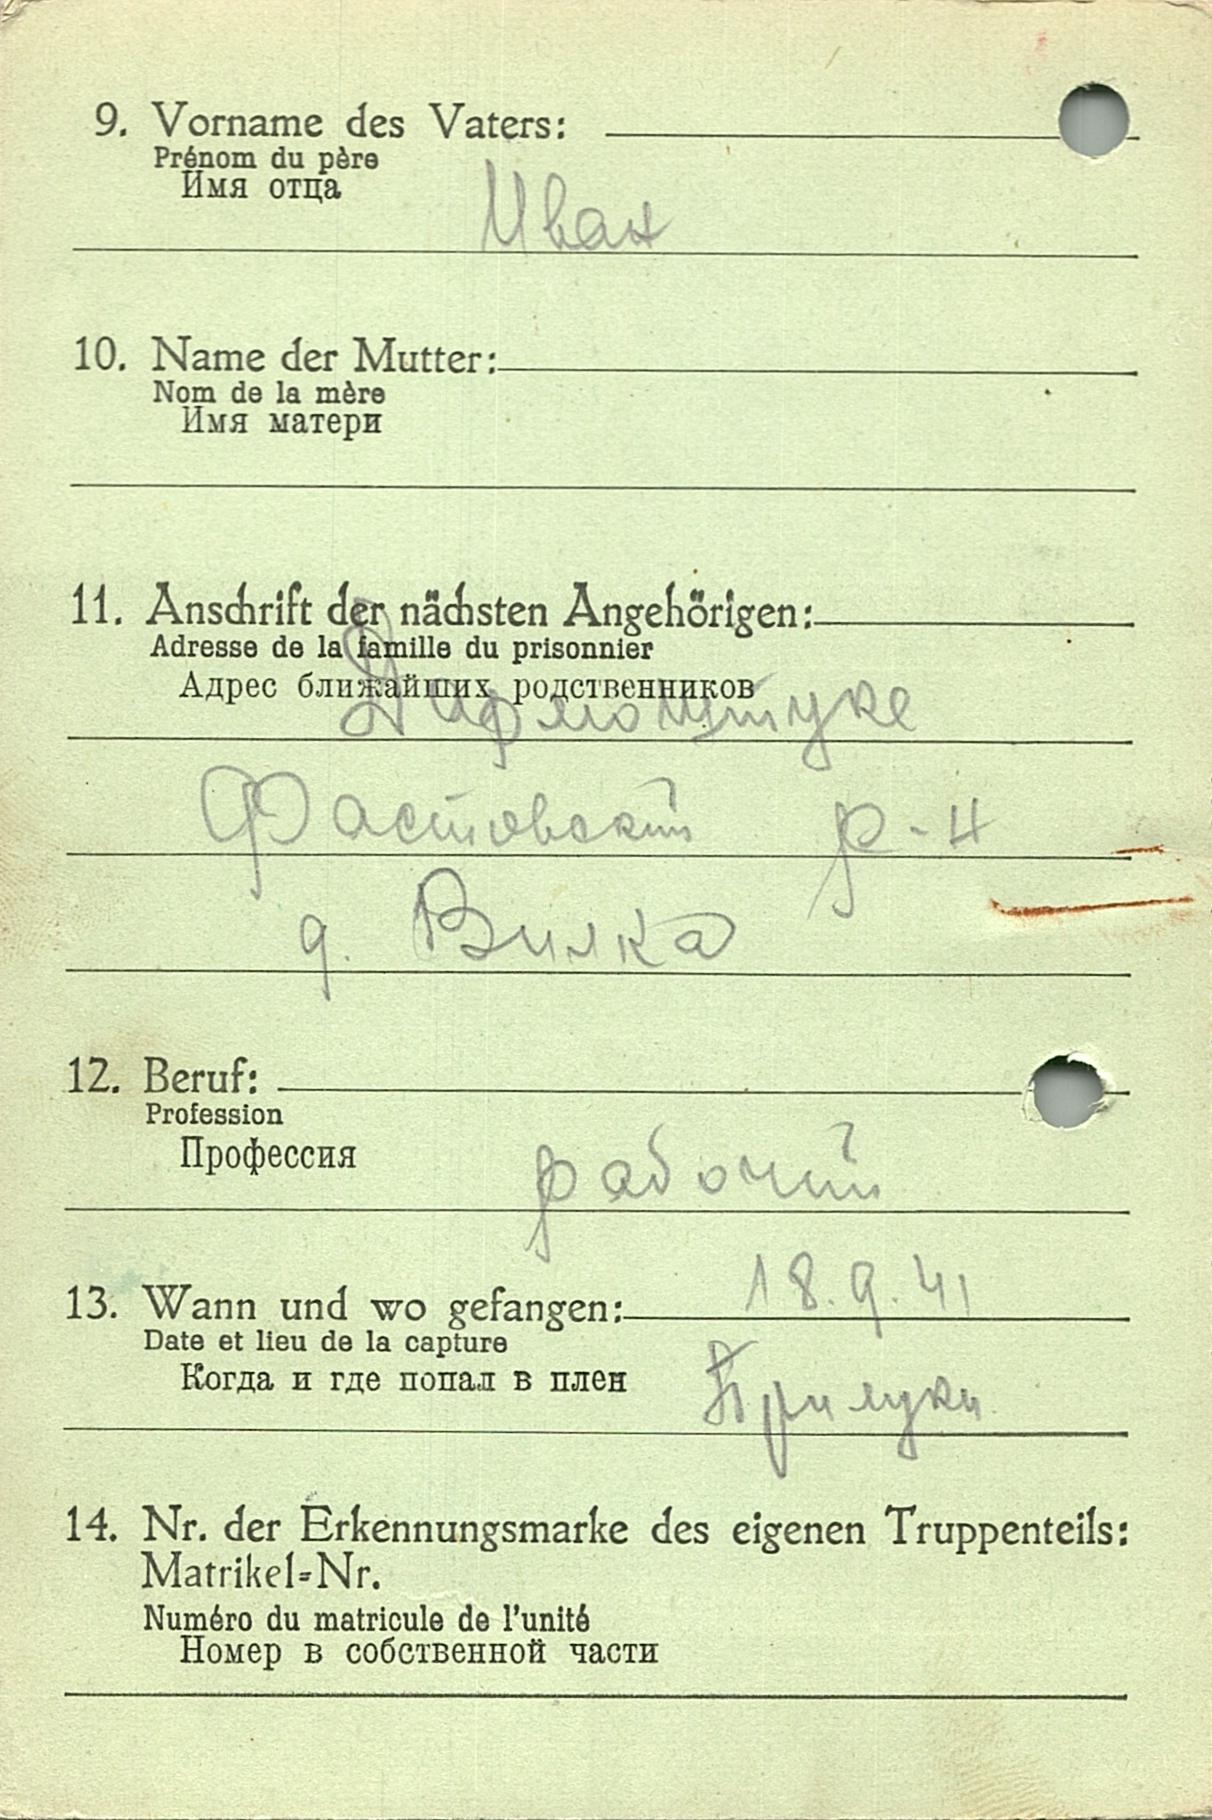 9. Vorname des Vaters:
Prénom du père
Имя отца
Иван
10. Name der Mutter:
Nom de la mère
Имя матери
11. Anschrift der nächsten Angehörigen:
Adresse de la famille du prisonnier
Адрес ближайших родственников
Фастовский р-н
д. Вилка
12. Beruf:
Profession
Профессия
рабочий
13. Wann und wo gefangen: 18.9.41
Date et lieu de la capture
Когда и где попал в плен
Прилуки
14. Nr. der Erkennungsmarke des eigenen Truppenteils:
Matrikel-Nr.
Numéro du matricule de l'unité
Номер в собственной части